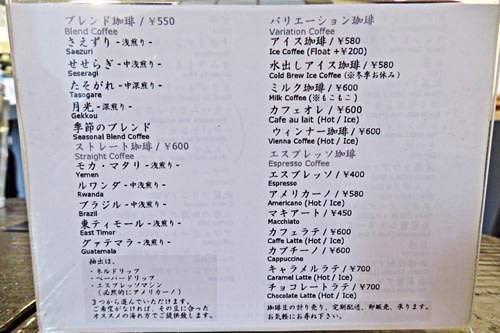 ブレンド珈琲 / ¥550
Blend Coffee
さえずり - 浅煎り -
Saezuri
せせらぎ - 中浅煎り -
Seseragi
たそがれ - 中深煎り -
Tasogare
月光 - 深煎り -
Gekkou
季節のブレンド
Seasonal Blend Coffee
ストレート珈琲 / ¥600
Straight Coffee
モカ・マタリ - 浅煎り -
Yemen
ルワンダ - 中浅煎り -
Rwanda
ブラジル - 中浅煎り -
Brazil
東ティモール - 浅煎り -
East Timor
グァテマラ - 浅煎り -
Guatemala
抽出は、
・ネルドリップ
・ペーパードリップ
・エスプレッソマシン
(必然的にアメリカーノ)
3つから選んでいただけます。
ご希望がなければ、その豆に合った
オススメの淹れ方でご提供致します。
バリエーション珈琲
Variation Coffee
アイス珈琲 / ¥580
Ice Coffee (Float +¥200)
水出しアイス珈琲 / ¥580
Cold Brew Ice Coffee (※冬季お休み)
ミルク珈琲 / ¥600
Milk Coffee (※もこもこ)
カフェオレ / ¥600
Cafe au lait (Hot / Ice)
ウィンナー珈琲 / ¥600
Vienna Coffee (Hot / Ice)
エスプレッソ珈琲
Espresso Coffee
エスプレッソ / ¥400
Espresso
アメリカーノ / ¥580
Americano (Hot / Ice)
マキアート / ¥450
Macchiato
カフェラテ / ¥600
Caffe Latte (Hot / Ice)
カプチーノ / ¥600
Cappuccino
キャラメルラテ / ¥700
Caramel Latte (Hot / Ice)
チョコレートラテ / ¥700
Chocolate Latte (Hot / Ice)
珈琲豆の計り売り、定期配送、卸販売、承ります。
お気軽にお尋ね下さい。